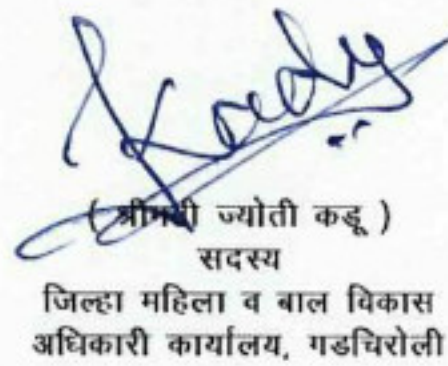 Kady
( श्रीमती ज्योती कडू )
सदस्य
जिल्हा महिला व बाल विकास
अधिकारी कार्यालय, गडचिरोली